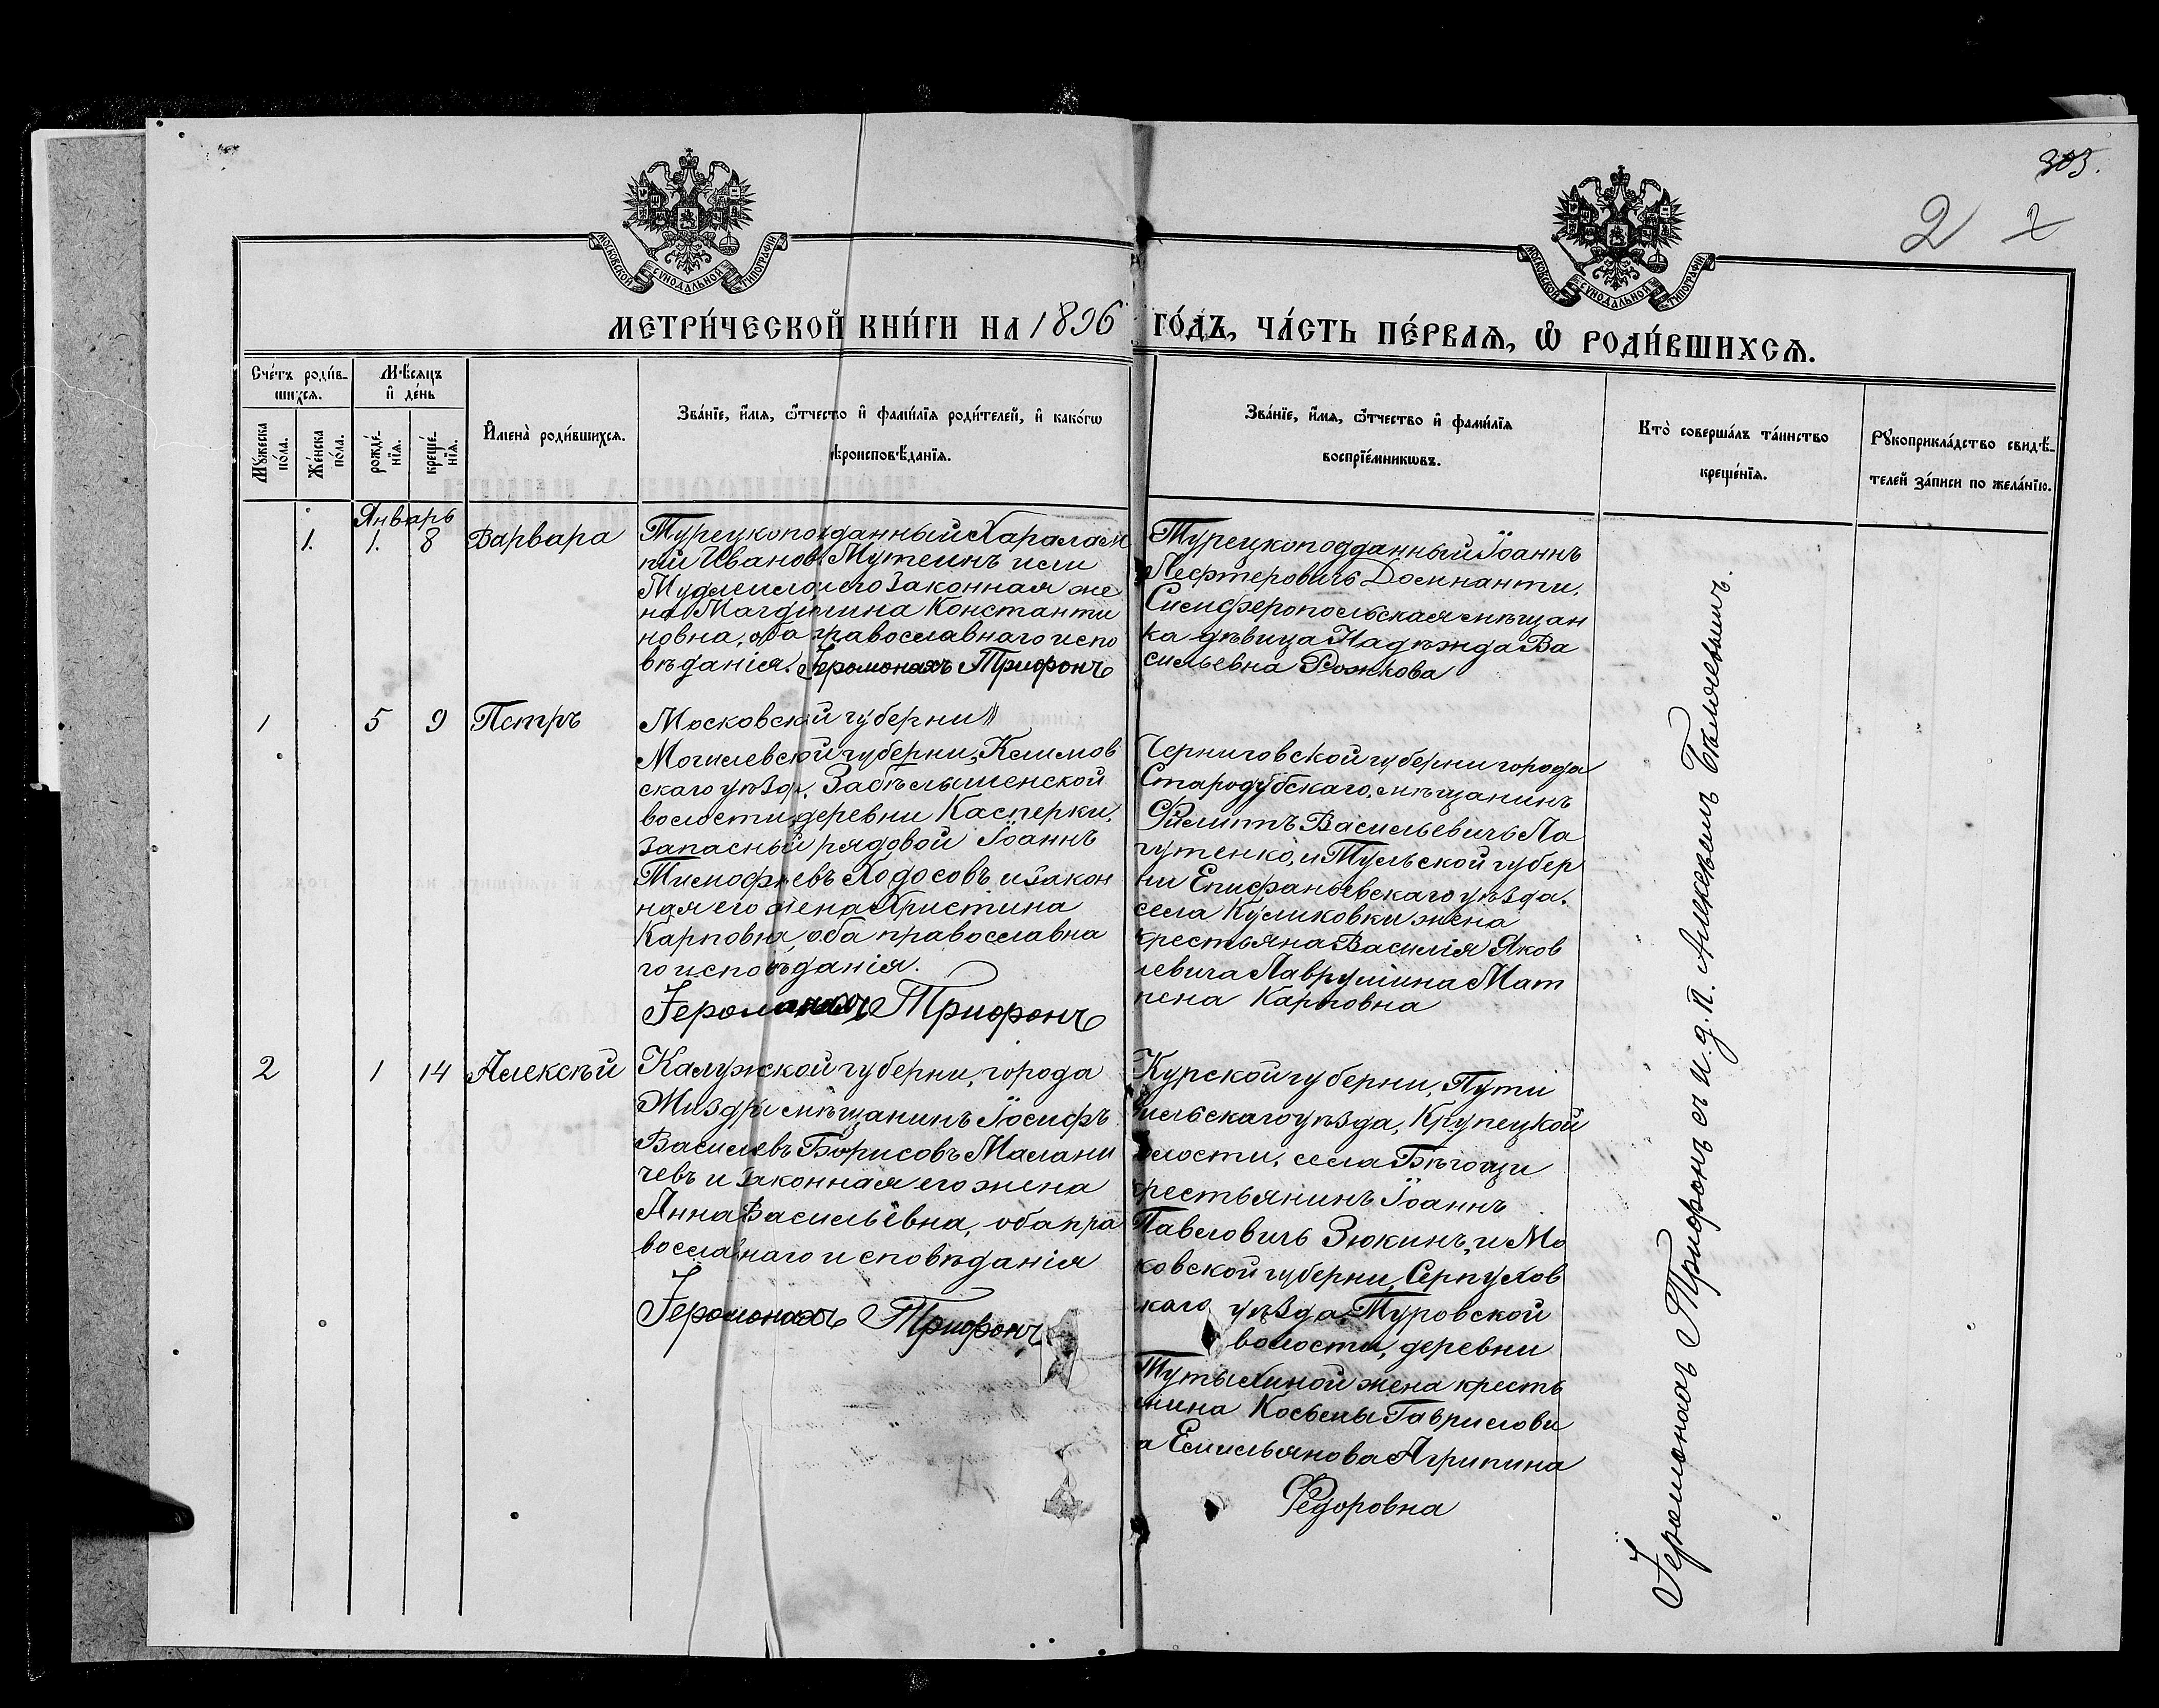 303.
2 2
МОСКОВСКОЙ СѴНОДАЛЬНОЙ ТИПОГРАФІИ
МОСКОВСКОЙ СѴНОДАЛЬНОЙ ТИПОГРАФІИ
МЕТРИ́ЧЕСКОЙ КНИ́ГИ НА 1896 ГО́ДЪ, ЧА́СТЬ ПЕ́РВАѦ, Ѡ РОДИ́ВШИХСѦ.
Сче́тъ роди́в-
шихсѧ.
Мѣ́сѧцъ
и҆ де́нь
Мꙋ́жеска
по́ла.
Же́нска
по́ла.
рожде́-
нїѧ.
креще́-
нїѧ.
И҆мена̀ роди́вшихсѧ.
Зва́нїе, и҆́мѧ, ѻ҆́тчество и҆ фами́лїѧ роди́телей, и҆ како́гѡ
вѣроисповѣ́данїѧ.
Зва́нїе, и҆́мѧ, ѻ҆́тчество и҆ фами́лїѧ
воспрїе́мникѡвъ.
Кто̀ соверша́лъ та́инство
креще́нїѧ.
Рꙋкоприкла́дство свидѣ́-
телей за́писи по жела́нїю.
Январь
1. 1. 8 Варвара
Турецкоподданный Харалам
пій Ивановъ Мутеинъ или
его законная же
на Магдалина Константи
новна, оба православнаго испо
вѣданія. Іеромонахъ Трифонъ
Турецкоподданный Іоаннъ
Лефтеровичъ Доминанти,
Симферопольская мѣщан
ка дѣвица Надѣжда Ва
сильевна Рожкова
1 5 9 Петръ
Московской губерни
Могилевской губерни, Климов
скаго уѣзда, Забѣлышенской
волости, деревни Касперки,
запасный рядовой Іоаннъ
Тимофѣевъ Ходосовъ и закон
ная его жена Христина
Карповна, оба православна
го исповѣданія.
Іеромонахъ Трифонъ
Черниговской губерни города
Стародубскаго, мѣщанинъ
Филиппъ Васильевичъ Ла
гутенко, и Тульской губер
ни Епифаньевскаго уѣзда,
села Куликовки жена
крестьяна Василія Яков
левича Лаврушина Мат
рена Карповна
2 1 14 Алексѣй
Калужской губерни, города
Жиздры мѣщанинъ Іосифъ
Василевъ Борисовъ Малани
чевъ и законная его жена
Анна Васильевна, оба пра
вославнаго исповѣданія
Іеромонахъ Трифонъ
Курской губерни, Пути
вльскаго уѣзда, Крупецкой
волости, села Бѣгощи
крестьянинъ Іоаннъ
Павловичъ Зюкинъ, и Мо
ковской губерни, Серпухов
каго уѣзда, Туровской
волости, деревни
Тутыхиной жена кресть
янина Косьмы Гаврилови
а Емильянова Агрипина
Федоровна
Іеромонахъ Трифонъ съ и. д. п. Алексѣемъ Бѣляевымъ.